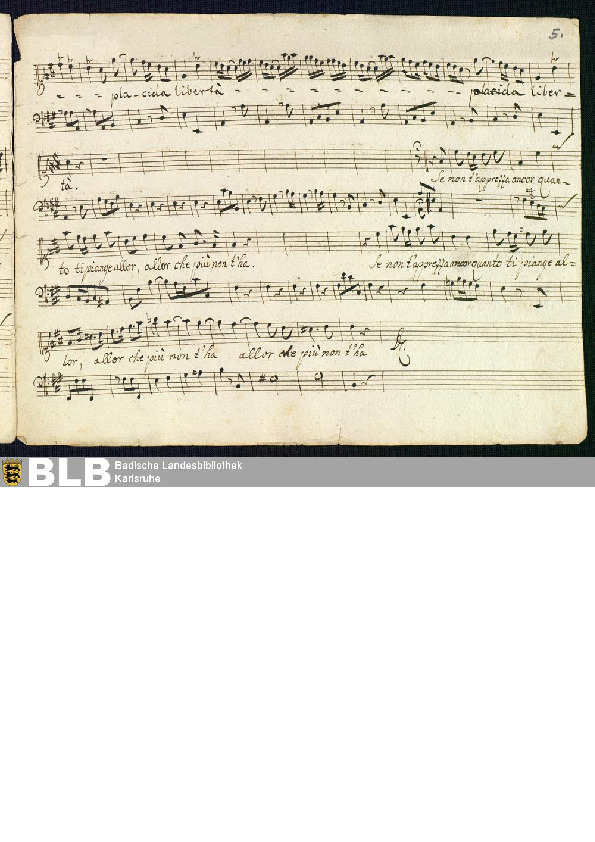 5.
- - - placida libertà - - - - - - - - - - - placida liber=
tà. Se non t'appressa ancor quan=
to ti piange allor, allor che più non t'ha. Se non t'appressa ancor quanto ti piange al=
lor, allor che più non t'ha allor che più non t'ha
BLB Badische Landesbibliothek
Karlsruhe